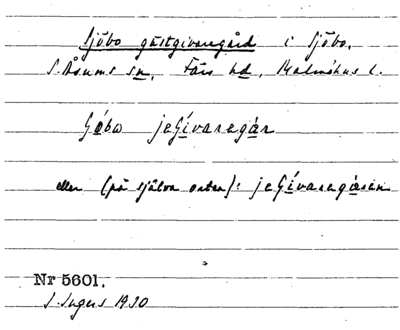 Sjöbo gästgivaregård i Sjöbo.
S. Åsums sn, Färs hd, Malmöhus l.
jeſívaregár
eller (på själva orten): jeſívaregåren
Nr 5601.
1930